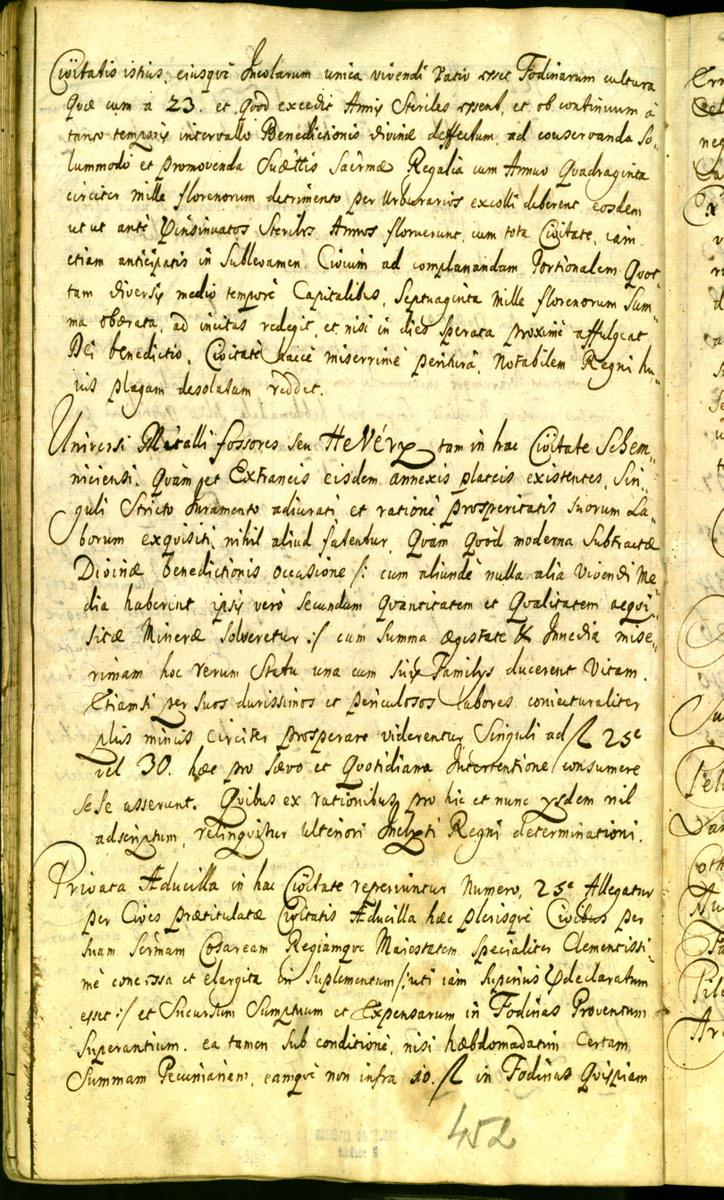 Civitatis istius, eiusqve Incolarum unica vivendi ratio esset Fodinarum cultura
Quæ cum a 23. et quod excedit Annis Steriles essent, et ob continuum à
tanto temporis intervallo Benedictionis divinæ deffectum, ad conservanda So„
lummodo et promovenda Suættis Sacrmæ Regalia cum Annuo Quadraginta
circiter mille florenorum detrimento per Urburarios excolli deberent, eosdem
ut ut ante Insinuatos Steriles Annos floruerunt, cum tota Civitate, iam
etiam anticipatis in Sublevamen Civium ad complanandam Portionalem Quot„
tam diversis medio tempore Capitalibus, Septuaginta mille florenorum Sum„
ma obærata, ad incitas redegit, et nisi in dies sperata proxime affulgeat
Dei benedictio, Civitate hacce miserrime peritura, Notabilem Regni hu„
ius plagam desolatam reddet.
Universi Metalli fossores seu HeVérx tam in hac Civitate Schem„
niciensi. Quam et Extraneis eisdem annexis plateis existentes, Sin„
guli Stricto Iuramento adiurati et ratione prosperitatis suorum La„
borum exquisiti, nihil aliud fatentur, Quam quod moderna Subtractæ
Divinæ benedictionis occasione /: cum aliunde nulla alia Vivendi Me„
dia haberent ipsis vero secundum Quantitatem et Qualitatem aequi„
sitæ Mineræ Solveretur :/ cum Summa ægestate & Innedia mise„
rimam hoc rerum Statu una cum suis Familys ducerent Vitam.
Etiamsi per suos durissimos et periculosos Labores coniecturaliter
plus minus circiter prosperare viderentur Singuli ad fl 25e
vel 30. hæc pro Sævo et Quotidiana Intertentione consumere
sese asserunt. Quibus ex rationibus, pro hic et nunc ysdem nil
adscriptum, relinqvitur Ulteriori Inclyti Regni determinationi.
Privata Aducilla in hac Civitate reperiuntur Numero, 25e Allegatur
per Cives prætitulatæ Civitatis Aducilla hæc plerisque Civibus per
Suam Sermam Cesaream Regiamqve Maiestatem specialiter Clementissi„
me concessa et elargita in Suplementum /: uti iam Superius declaratum
esset :/ et Sucursum Sumptuum et Expensarum in Fodinas Proventum
Superantium. ea tamen Sub conditione, nisi hæbdomadatim Certam
Summam Pecuniariam, eamqve non infra 10. fl in Fodinas Quispiam
452